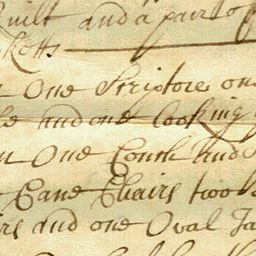 Quilt and a pair of
One Scriptore one
and one Cooking
One Couch and
Cane Chairs two
and one Oval Ta